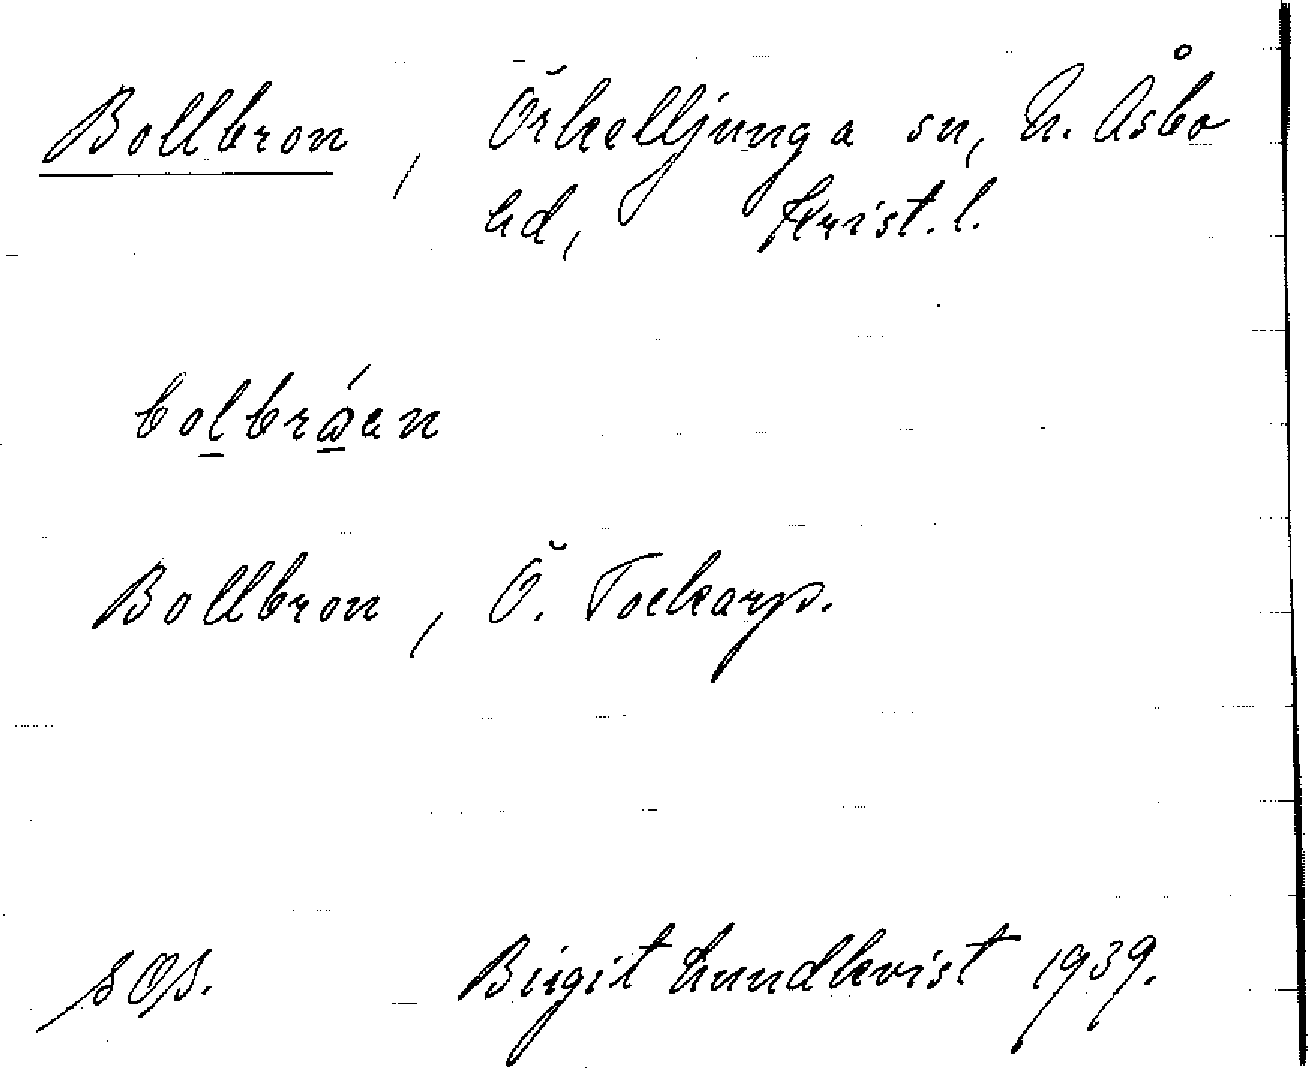 Bollbron, Örkelljunga sn, N. Åsbo
hd, Krist. l.
bolbróan
Bollbron, Ö. Tockarp.
sOp.
Birgit Lundkvist 1939.